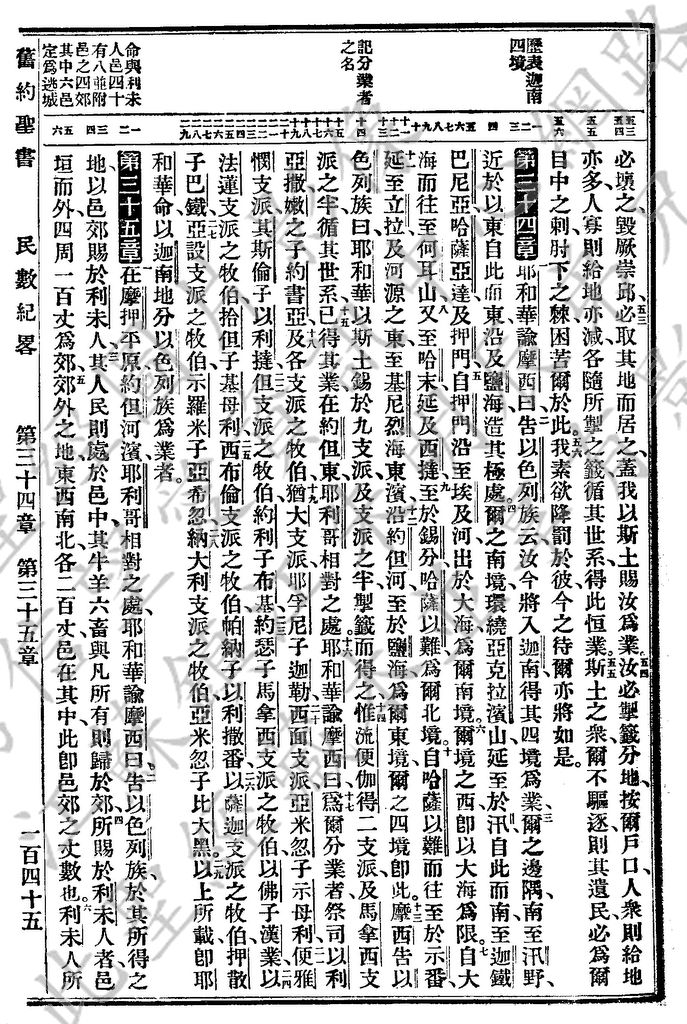 必壞之毀厥崇邱必取其地而居之蓋我以斯土賜汝爲業汝必掣籤分地按爾戶口人衆則給地
亦多人寡則給地亦減各隨所掣之籤循其世系得此恒業斯土之衆爾不驅逐則其遺民必爲爾
目中之刺肘下之棘困苦爾於此我素欲降罰於彼今之待爾亦將如是
第三十四章 耶和華諭摩西曰告以色列族云汝今將入迦南得其四境爲業爾之邊隅南至汛野
近於以東自此而東沿及鹽海造其極處爾之南境環繞亞克拉濱山延至於汛自此而南至迦鐵
巴尼亞哈薩亞達及押門自押門沿至埃及河出於大海爲爾南境爾境之西卽以大海爲限自大
海而往至何耳山又至哈末延及西撻至於錫分哈薩以難爲爾北境自哈薩以難而往至於示番
延至立拉及河源之東至基尼烈海東濱沿約但河至於鹽海爲爾東境爾之四境卽此摩西告以
色列族曰耶和華以斯土錫於九支派及支派之半掣籤而得之惟流便伽得二支派及馬拿西支
派之半循其世系已得其業在約但東耶利哥相對之處耶和華諭摩西曰爲爾分業者祭司以利
亞撒嫩之子約書亞及各支派之牧伯猶大支派耶孚尼子迦勒西面支派亞米忽子示母利便雅
憫支派其斯倫子以利撻但支派之牧伯約利子布基約瑟子馬拿西支派之牧伯以弗子漢業以
法蓮支派之牧伯拾但子基母利西布倫支派之牧伯帕納子以利撒番以薩迦支派之牧伯押散
子巴鐵亞設支派之牧伯示羅米子亞希忽納大利支派之牧伯亞米忽子比大黑以上所載卽耶
和華命以迦南地分以色列族爲業者
第三十五章 在摩押平原約但河濱耶利哥相對之處耶和華諭摩西曰告以色列族於其所得之
地以邑郊賜於利未人其人民則處於邑中其牛羊六畜與凡所有則歸於郊所賜於利未人者邑
垣而外四周一百丈爲郊郊外之地東西南北各二百丈邑在其中此卽邑郊之丈數也利未人所
歷表迦南
四境
記分業者
之名
命與利未
人邑四十
有八並附
邑之四郊
其中六邑
定爲逃城
舊約聖書 民數紀畧 第三十四章 第三十五章 一百四十五